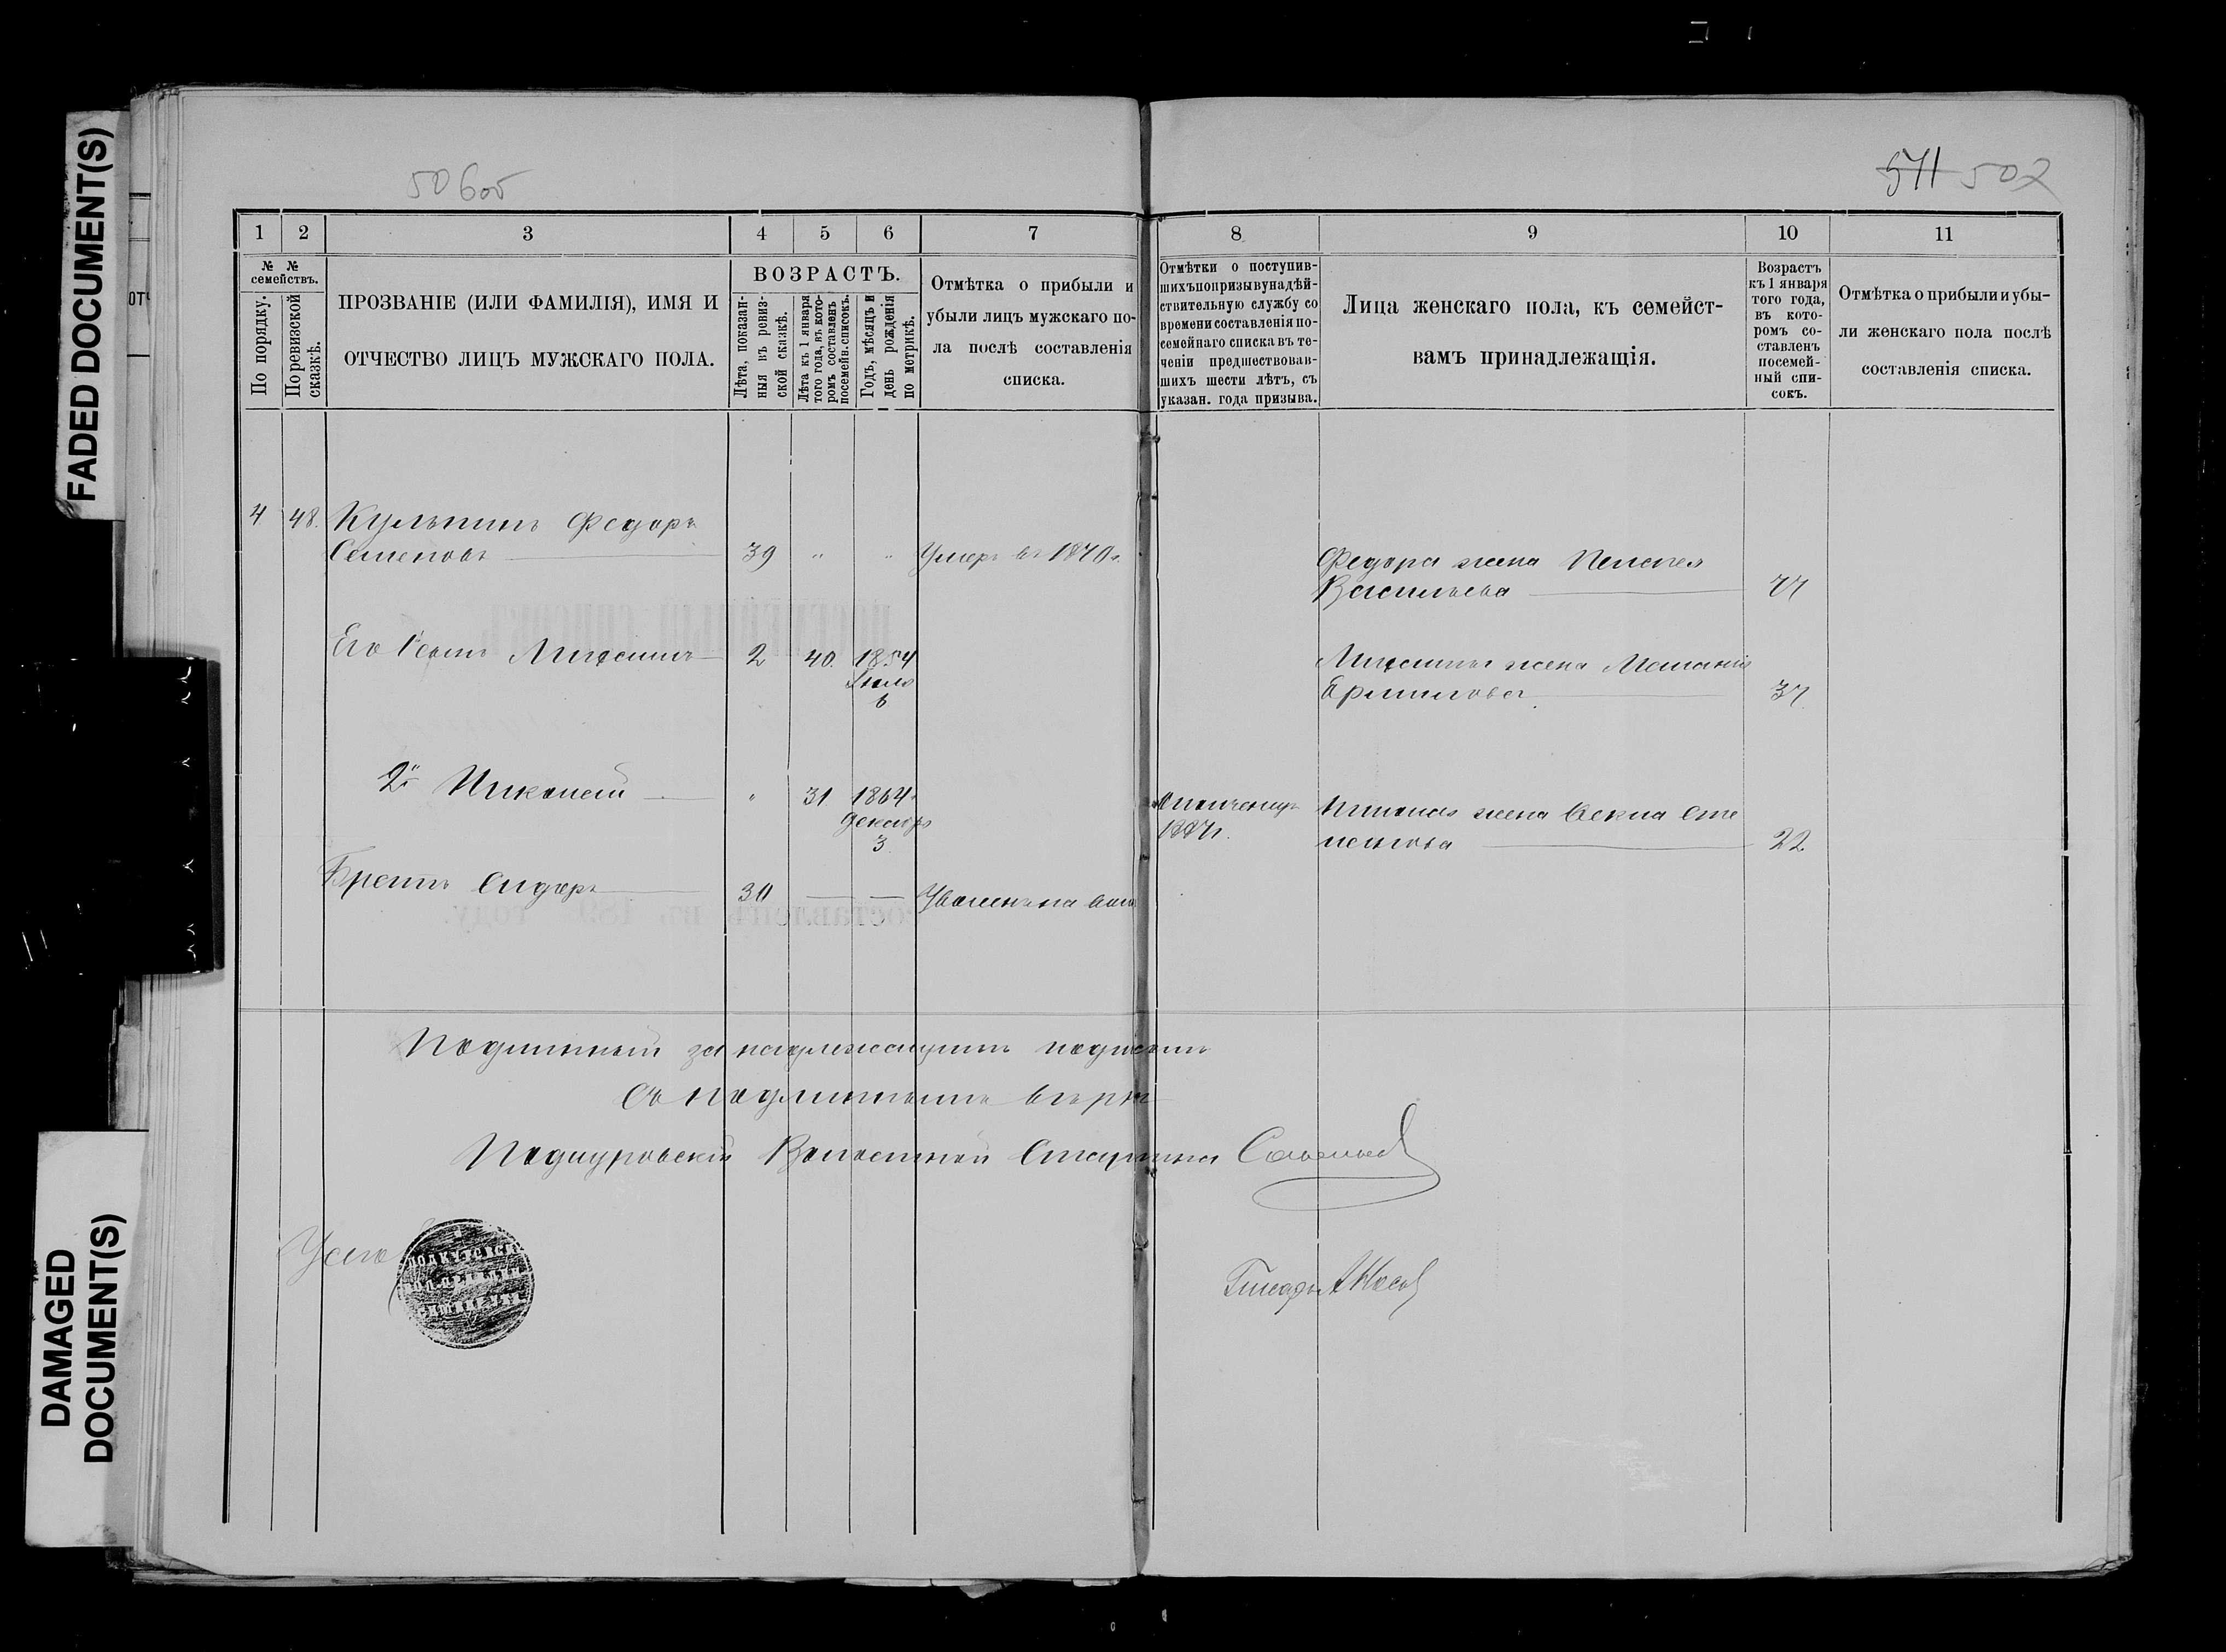 FADED DOCUMENT(S)
DAMAGED
DOCUMENT(S)
50 об
571 502
1 2 3 4 5 6 7 8 9 10 11
№ №
семействъ.
По порядку.
По ревизской
сказкѣ.
ПРОЗВАНІЕ (ИЛИ ФАМИЛІЯ), ИМЯ И
ОТЧЕСТВО ЛИЦЪ МУЖСКАГО ПОЛА.
ВОЗРАСТЪ.
Лѣта, показан-
ныя въ ревиз-
ской сказкѣ.
Лѣта къ 1 января
того года, въ кото-
ромъ составленъ
посемейн. списокъ.
Годъ, мѣсяцъ и
день рожденія
по метрикѣ.
Отмѣтка о прибыли и
убыли лицъ мужскаго по-
ла послѣ составленія
списка.
Отмѣтки о поступив-
шихъ по призыву на дѣй-
ствительную службу со
времени составленія по-
семейнаго списка въ те-
ченіи предшествовав-
шихъ шести лѣтъ, съ
указан. года призыва.
Лица женскаго пола, къ семейст-
вамъ принадлежащія.
Возрастъ
къ 1 января
того года,
въ кото-
ромъ со-
ставленъ
посемей-
ный спи-
сокъ.
Отмѣтка о прибыли и убы-
ли женскаго пола послѣ
составленія списка.
4 48. Кулькинъ Федоръ
Семеновъ 39 " " Умеръ въ 1870г.
Федора жена Пелагея
Васильева 77
Его 1 сынъ 2 40. 1854
Іюля
6
жена Меланія
Ермилова 37
2й 31 1864
Декабря
3
Ополченецъ
жена Аксинья Сте
панова 22
Братъ Сидоръ 30 — — Уволенъ на волю
Подлинный за надлежащимъ подписомъ
Съ подлиннымъ вѣрно
Волостной Старшина
Писарь